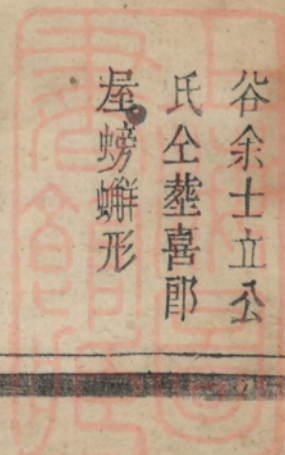 谷余士立公
氏仝塟喜郎
屋螃蠏形